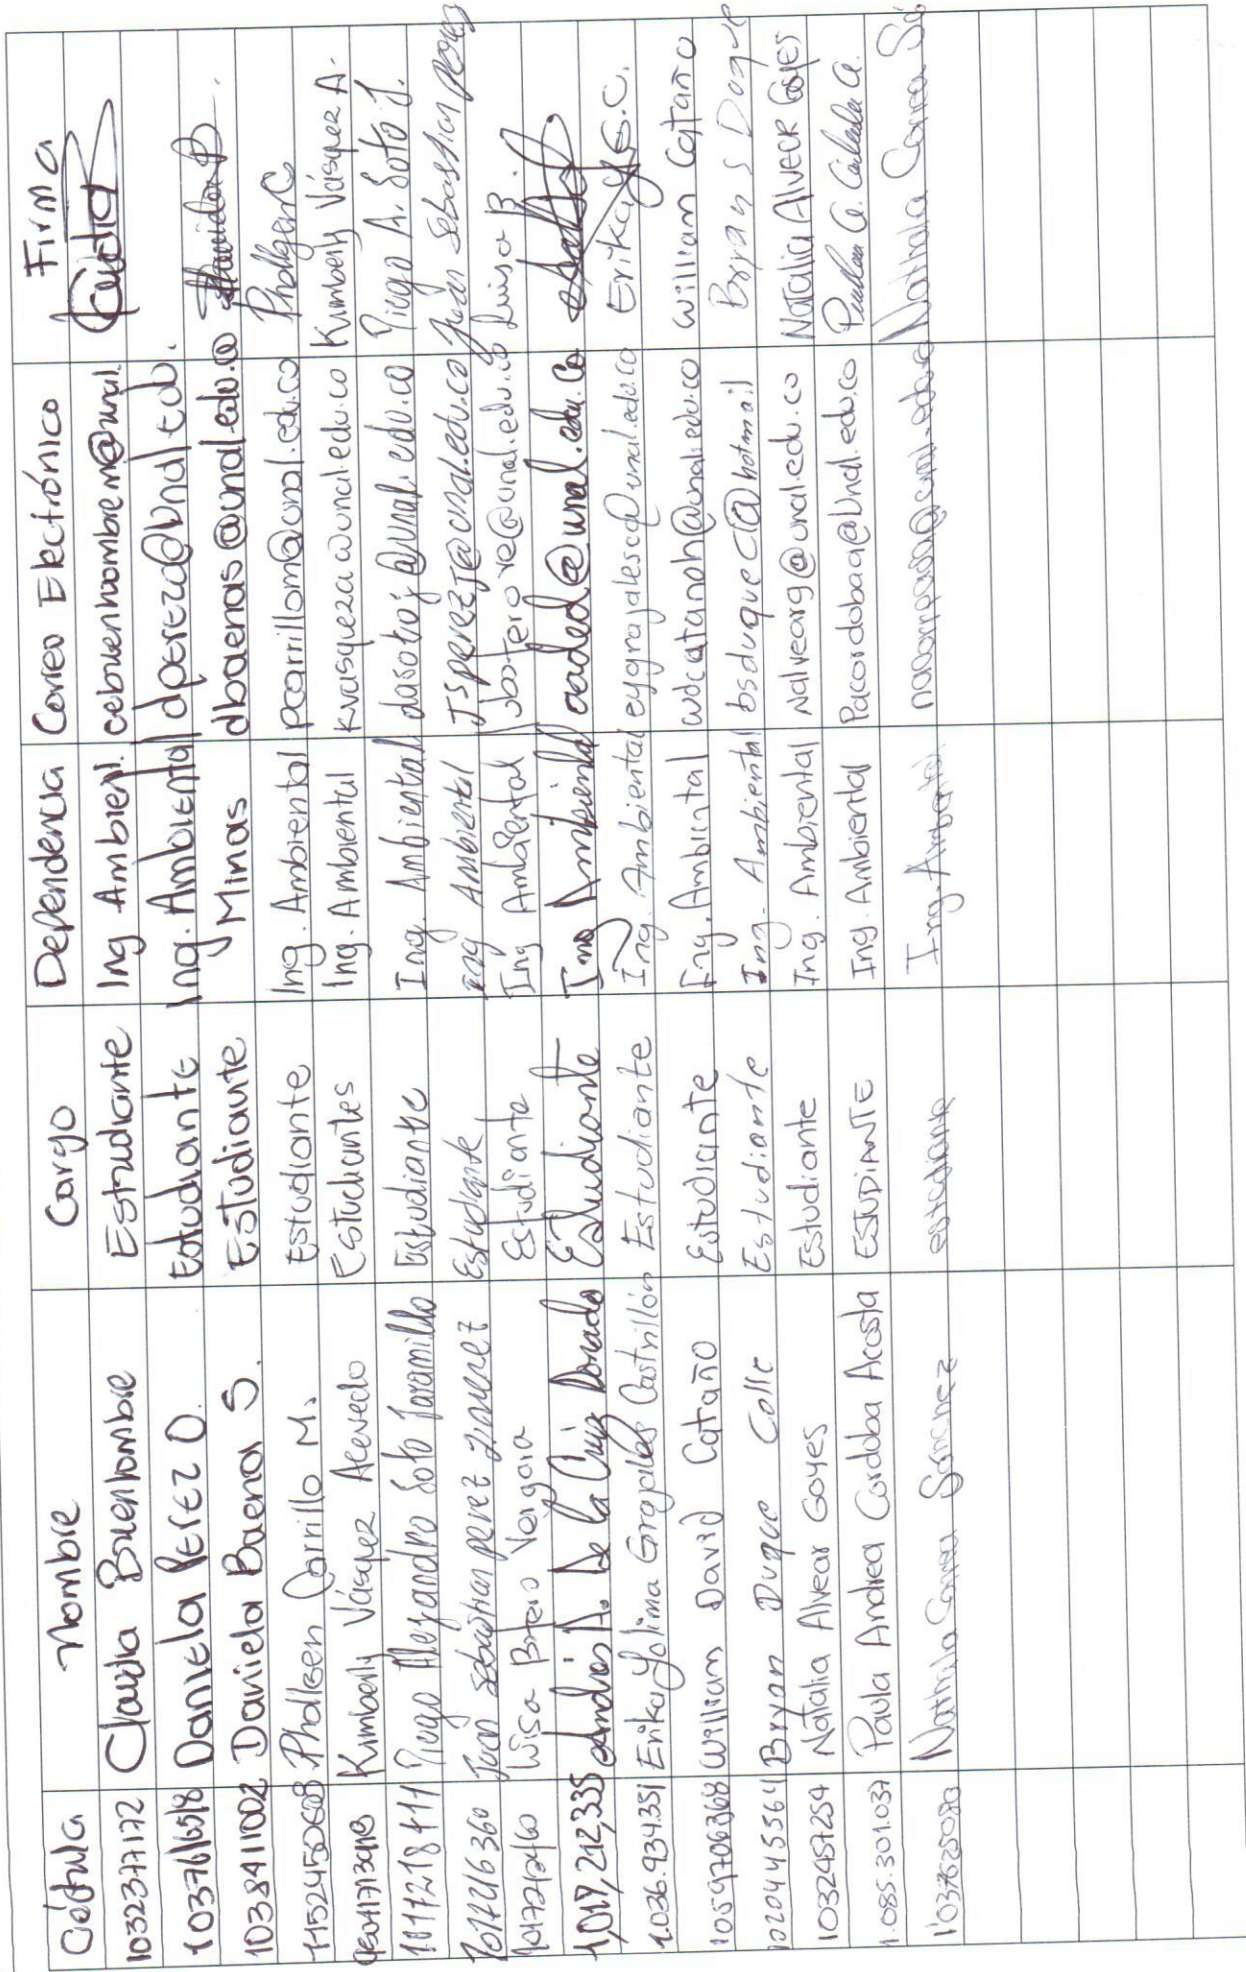 Cédula Nombre Cargo Dependencia Correo Electrónico Firma
1032377172 Claudia Buenhombre Estudiante Ing Ambient. cebuenhombrem@unal. Claudia
1037616518 Daniela Perez O. Estudiante Ing. Ambiental dperezo@unal.edu.
1038411002 Daniela Baena S. Estudiante Minas dbaenas@unal.edu.co Daniela B.
1152450608 Phallgen Carrillo M. Estudiante Ing. Ambiental pcarrillom@unal.edu.co PhallgenC
Kimberly Vásquez Acevedo Estudiantes Ing. Ambiental kvasqueza@unal.edu.co Kimberly Vásquez A.
1017218411 Diego Alejandro Soto Jaramillo Estudiante Ing. Ambiental dasotoj@unal.edu.co Diego A. Soto J.
1017216360 Juan sebastian perez Jimenez Estudiante Ing Ambiental Jsperezj@unal.edu.co Juan Sebastian perez
Luisa Botero Vergara Estudiante Ing Ambiental lboterove@unal.edu.co Luisa B.
1,017,212,335 Andrés A. De la Cruz Dorado Estudiante Ing Ambiental aaded@unal.edu.co
1.036.934.351 Erika Yolima Grajales Castrillón Estudiante Ing. Ambiental eygrajalesc@unal.edu.co Erika Y.G.C.
1059706368 William David Cataño Estudiante Ing. Ambiental wdcatanoh@unal.edu.co William Cataño
1020445564 Bryan Duque Colle Estudiante Ing. Ambiental bsduquec@hotmail Bryan S Duque
1032457254 Natalia Alvear Goyes Estudiante Ing. Ambiental nalvearg@unal.edu.co Natalia Alvear Goyes
1.085.301.037 Paula Andrea Cordoba Acosta ESTUDIANTE Ing. Ambiental Pacordobaa@unal.edu.co Paula A. Cordoba A.
1037625083 Nathalia Correa Sánchez estudiante Ing. Ambiental Nathalia Correa Sá